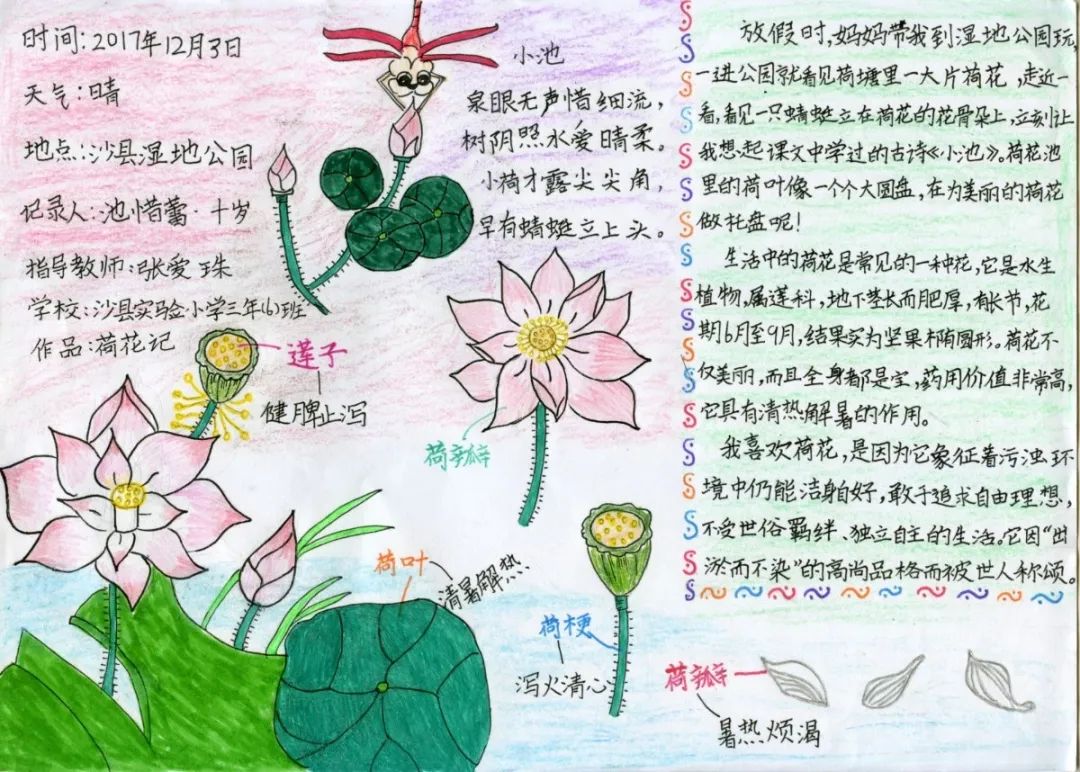 时间:2017年12月3日
天气:晴
地点:沙县湿地公园
记录人:池惜蕾·十岁
指导教师:张爱珠
学校:沙县实验小学三年(6)班
作品:荷花记
小池
泉眼无声惜细流，
树阴照水爱晴柔。
小荷才露尖尖角，
早有蜻蜓立上头。
莲子
健脾止泻
荷瓣
荷叶
清暑解热
荷梗
泻火清心
荷瓣
暑热烦渴
放假时,妈妈带我到湿地公园玩,
一进公园就看见荷塘里一大片荷花,走近一
看,看见一只蜻蜓立在荷花的花骨朵上,立刻让
我想起课文中学过的古诗《小池》。荷花池
里的荷叶像一个个大圆盘,在为美丽的荷花
做托盘呢!
生活中的荷花是常见的一种花,它是水生
植物,属莲科,地下茎长而肥厚,有长节,花
期6月至9月,结果实为坚果椭圆形。荷花不
仅美丽,而且全身都是宝,药用价值非常高,
它具有清热解暑的作用。
我喜欢荷花,是因为它象征着污浊环
境中仍能洁身自好,敢于追求自由理想,
不受世俗羁绊、独立自主的生活。它因“出
淤而不染”的高尚品格而被世人称颂。